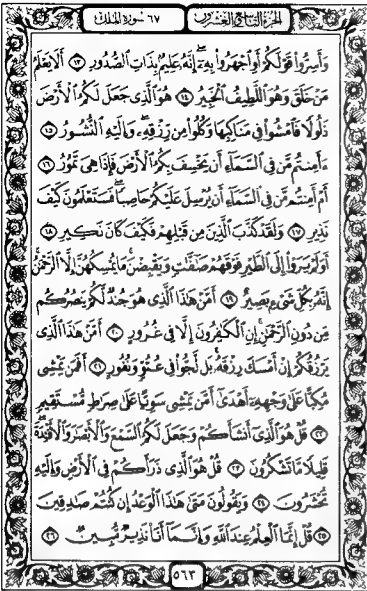 الجزء التاسع والعشرون
٦٧ سورة الملك
وَأَسِرُّوا۟ قَوْلَكُمْ أَوِ ٱجْهَرُوا۟ بِهِۦٓ ۖ إِنَّهُۥ عَلِيمٌۢ بِذَاتِ ٱلصُّدُورِ ١٣ أَلَا يَعْلَمُ
مَنْ خَلَقَ وَهُوَ ٱللَّطِيفُ ٱلْخَبِيرُ ١٤ هُوَ ٱلَّذِى جَعَلَ لَكُمُ ٱلْأَرْضَ
ذَلُولًا فَٱمْشُوا۟ فِى مَنَاكِبِهَا وَكُلُوا۟ مِن رِّزْقِهِۦ ۖ وَإِلَيْهِ ٱلنُّشُورُ ١٥
ءَأَمِنتُم مَّن فِى ٱلسَّمَآءِ أَن يَخْسِفَ بِكُمُ ٱلْأَرْضَ فَإِذَا هِىَ تَمُورُ ١٦
أَمْ أَمِنتُم مَّن فِى ٱلسَّمَآءِ أَن يُرْسِلَ عَلَيْكُمْ حَاصِبًا ۖ فَسَتَعْلَمُونَ كَيْفَ
نَذِيرِ ١٧ وَلَقَدْ كَذَّبَ ٱلَّذِينَ مِن قَبْلِهِمْ فَكَيْفَ كَانَ نَكِيرِ ١٨
أَوَلَمْ يَرَوْا۟ إِلَى ٱلطَّيْرِ فَوْقَهُمْ صَٰٓفَّٰتٍ وَيَقْبِضْنَ ۚ مَا يُمْسِكُهُنَّ إِلَّا ٱلرَّحْمَٰنُ ۚ
إِنَّهُۥ بِكُلِّ شَىْءٍۭ بَصِيرٌ ١٩ أَمَّنْ هَٰذَا ٱلَّذِى هُوَ جُندٌ لَّكُمْ يَنصُرُكُم
مِّن دُونِ ٱلرَّحْمَٰنِ ۚ إِنِ ٱلْكَٰفِرُونَ إِلَّا فِى غُرُورٍ ٢٠ أَمَّنْ هَٰذَا ٱلَّذِى
يَرْزُقُكُمْ إِنْ أَمْسَكَ رِزْقَهُۥ ۚ بَل لَّجُّوا۟ فِى عُتُوٍّ وَنُفُورٍ ٢١ أَفَمَن يَمْشِى
مُكِبًّا عَلَىٰ وَجْهِهِۦٓ أَهْدَىٰٓ أَمَّن يَمْشِى سَوِيًّا عَلَىٰ صِرَٰطٍ مُّسْتَقِيمٍ
٢٢ قُلْ هُوَ ٱلَّذِىٓ أَنشَأَكُمْ وَجَعَلَ لَكُمُ ٱلسَّمْعَ وَٱلْأَبْصَٰرَ وَٱلْأَفْـِٔدَةَ ۖ
قَلِيلًا مَّا تَشْكُرُونَ ٢٣ قُلْ هُوَ ٱلَّذِى ذَرَأَكُمْ فِى ٱلْأَرْضِ وَإِلَيْهِ
تُحْشَرُونَ ٢٤ وَيَقُولُونَ مَتَىٰ هَٰذَا ٱلْوَعْدُ إِن كُنتُمْ صَٰدِقِينَ
٢٥ قُلْ إِنَّمَا ٱلْعِلْمُ عِندَ ٱللَّهِ وَإِنَّمَآ أَنَا۠ نَذِيرٌ مُّبِينٌ ٢٦
٥٦٣